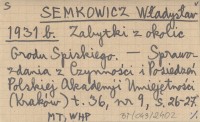 S
SEMKOWICZ Władysław
1931 b. Zabytki z okolic
Grodu Spiskiego. — Sprawo-
zdania z Czynności i Posiedzeń
Polskiej Akademji Umiejętności
(Kraków) t. 36, nr 9, s. 26-27.
MT, WHP